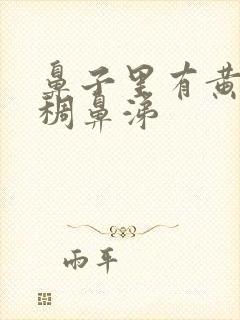 鼻子里有黄
稠鼻涕
雨平